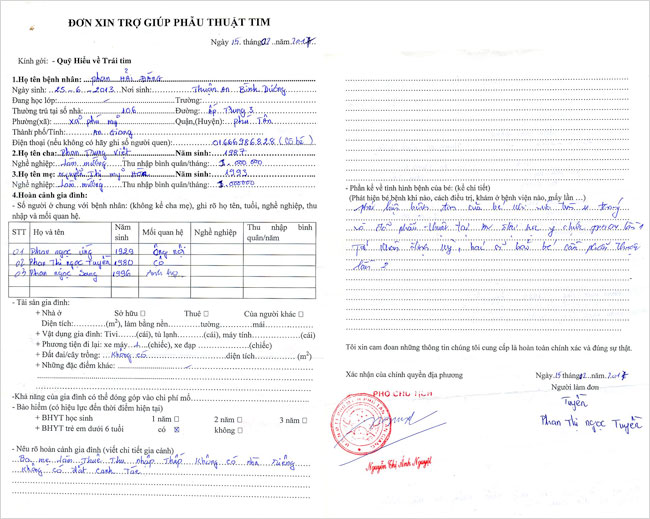 ĐƠN XIN TRỢ GIÚP PHẪU THUẬT TIM
Ngày 15 tháng 02 năm 2017
Kính gởi: - Quỹ Hiểu về Trái tim
1.Họ tên bệnh nhân: phan HẢI ĐĂNG
Ngày sinh: 25-6-2013 Nơi sinh: Thuận An Bình Dương
Đang học lớp: Trường:
Thường trú tại số nhà: 106 Đường: ấp Trung 3
Phường(xã): xã phú mỹ Quận,(Huyện): phú Tân
Thành phố/Tỉnh: An Giang
Điện thoại (nếu không có hãy ghi số người quen): 01666986828 (Cô bé)
2.Họ tên cha: Phan Dung Việt Năm sinh: 1987
Nghề nghiệp: Làm mướn Thu nhập bình quân/tháng: 1.000.000
3.Họ tên mẹ: nguyễn Thị mỹ Hoa Năm sinh: 1993
Nghề nghiệp: Làm mướn Thu nhập bình quân/tháng: 1.000000
4.Hoàn cảnh gia đình:
- Số người ở chung với bệnh nhân: (không kể cha mẹ), ghi rõ họ tên, tuổi, nghề nghiệp, thu
nhập và mối quan hệ.
STT Họ và tên Năm sinh Mối quan hệ Nghề nghiệp Thu nhập bình quân/năm
01 Phan ngọc 1929 ông nội
02 Phan Thị ngọc Tuyền 1980 Cô
03 Phan ngọc Sang 1996 Anh họ
- Tài sản gia đình:
+ Nhà ở Sở hữu ☐ Thuê ☐ Của người khác ☐
Diện tích: (m2), làm bằng nền tường mái
+ Vật dụng gia đình: Tivi (cái), tủ lạnh (cái), máy tính (cái)
+ Phương tiện đi lại: xe máy 1 (chiếc), xe đạp (chiếc)
+ Đất đai/cây trồng: Không có diện tích (m2)
+ Những đặc điểm khác:
-Khả năng của gia đình có thể đóng góp vào chi phí mổ
- Bảo hiểm (có hiệu lực đến thời điểm hiện tại)
+ BHYT học sinh 1 năm ☐ 2 năm ☐ 3 năm ☐
+ BHYT trẻ em dưới 6 tuổi có ☒ không ☐
- Nêu rõ hoàn cảnh gia đình (viết chi tiết gia cảnh)
Ba mẹ làm Thuê Thu nhập Thấp Không có nhà riêng
không có đất canh Tác
- Phần kể về tình hình bệnh của bé: (kể chi tiết)
(Phát hiện bé bệnh khi nào, cách điều trị, khám ở bệnh viện nào, mấy lần …)
phát hiện bệnh tim của bé khi
phẫu thuật tại lần 1
bé cần phẫu thuật
lần 2
Tôi xin cam đoan những thông tin chúng tôi cung cấp là hoàn toàn chính xác và đúng sự thật.
Xác nhận của chính quyền địa phương
Ngày 15 tháng 02 năm 2017
Người làm đơn
PHÓ CHỦ TỊCH
Tuyền
Phan Thị ngọc Tuyền
Nguyễn Thị Ánh Nguyệt